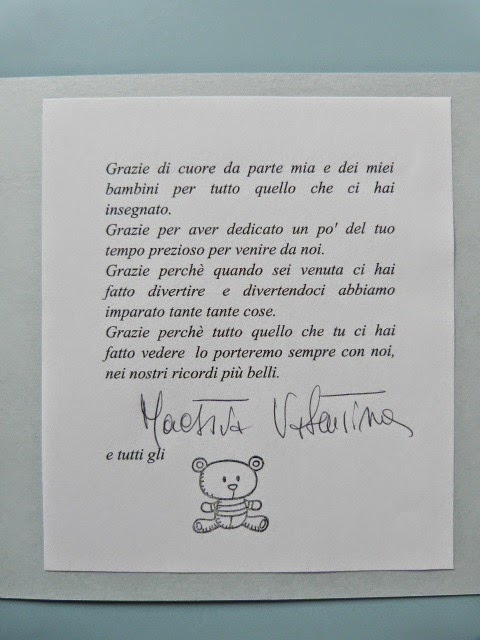 Grazie di cuore da parte mia e dei miei
bambini per tutto quello che ci hai
insegnato.
Grazie per aver dedicato un po' del tuo
tempo prezioso per venire da noi.
Grazie perchè quando sei venuta ci hai
fatto divertire e divertendoci abbiamo
imparato tante tante cose.
Grazie perchè tutto quello che tu ci hai
fatto vedere lo porteremo sempre con noi,
nei nostri ricordi più belli.
Maestra Valentina
e tutti gli